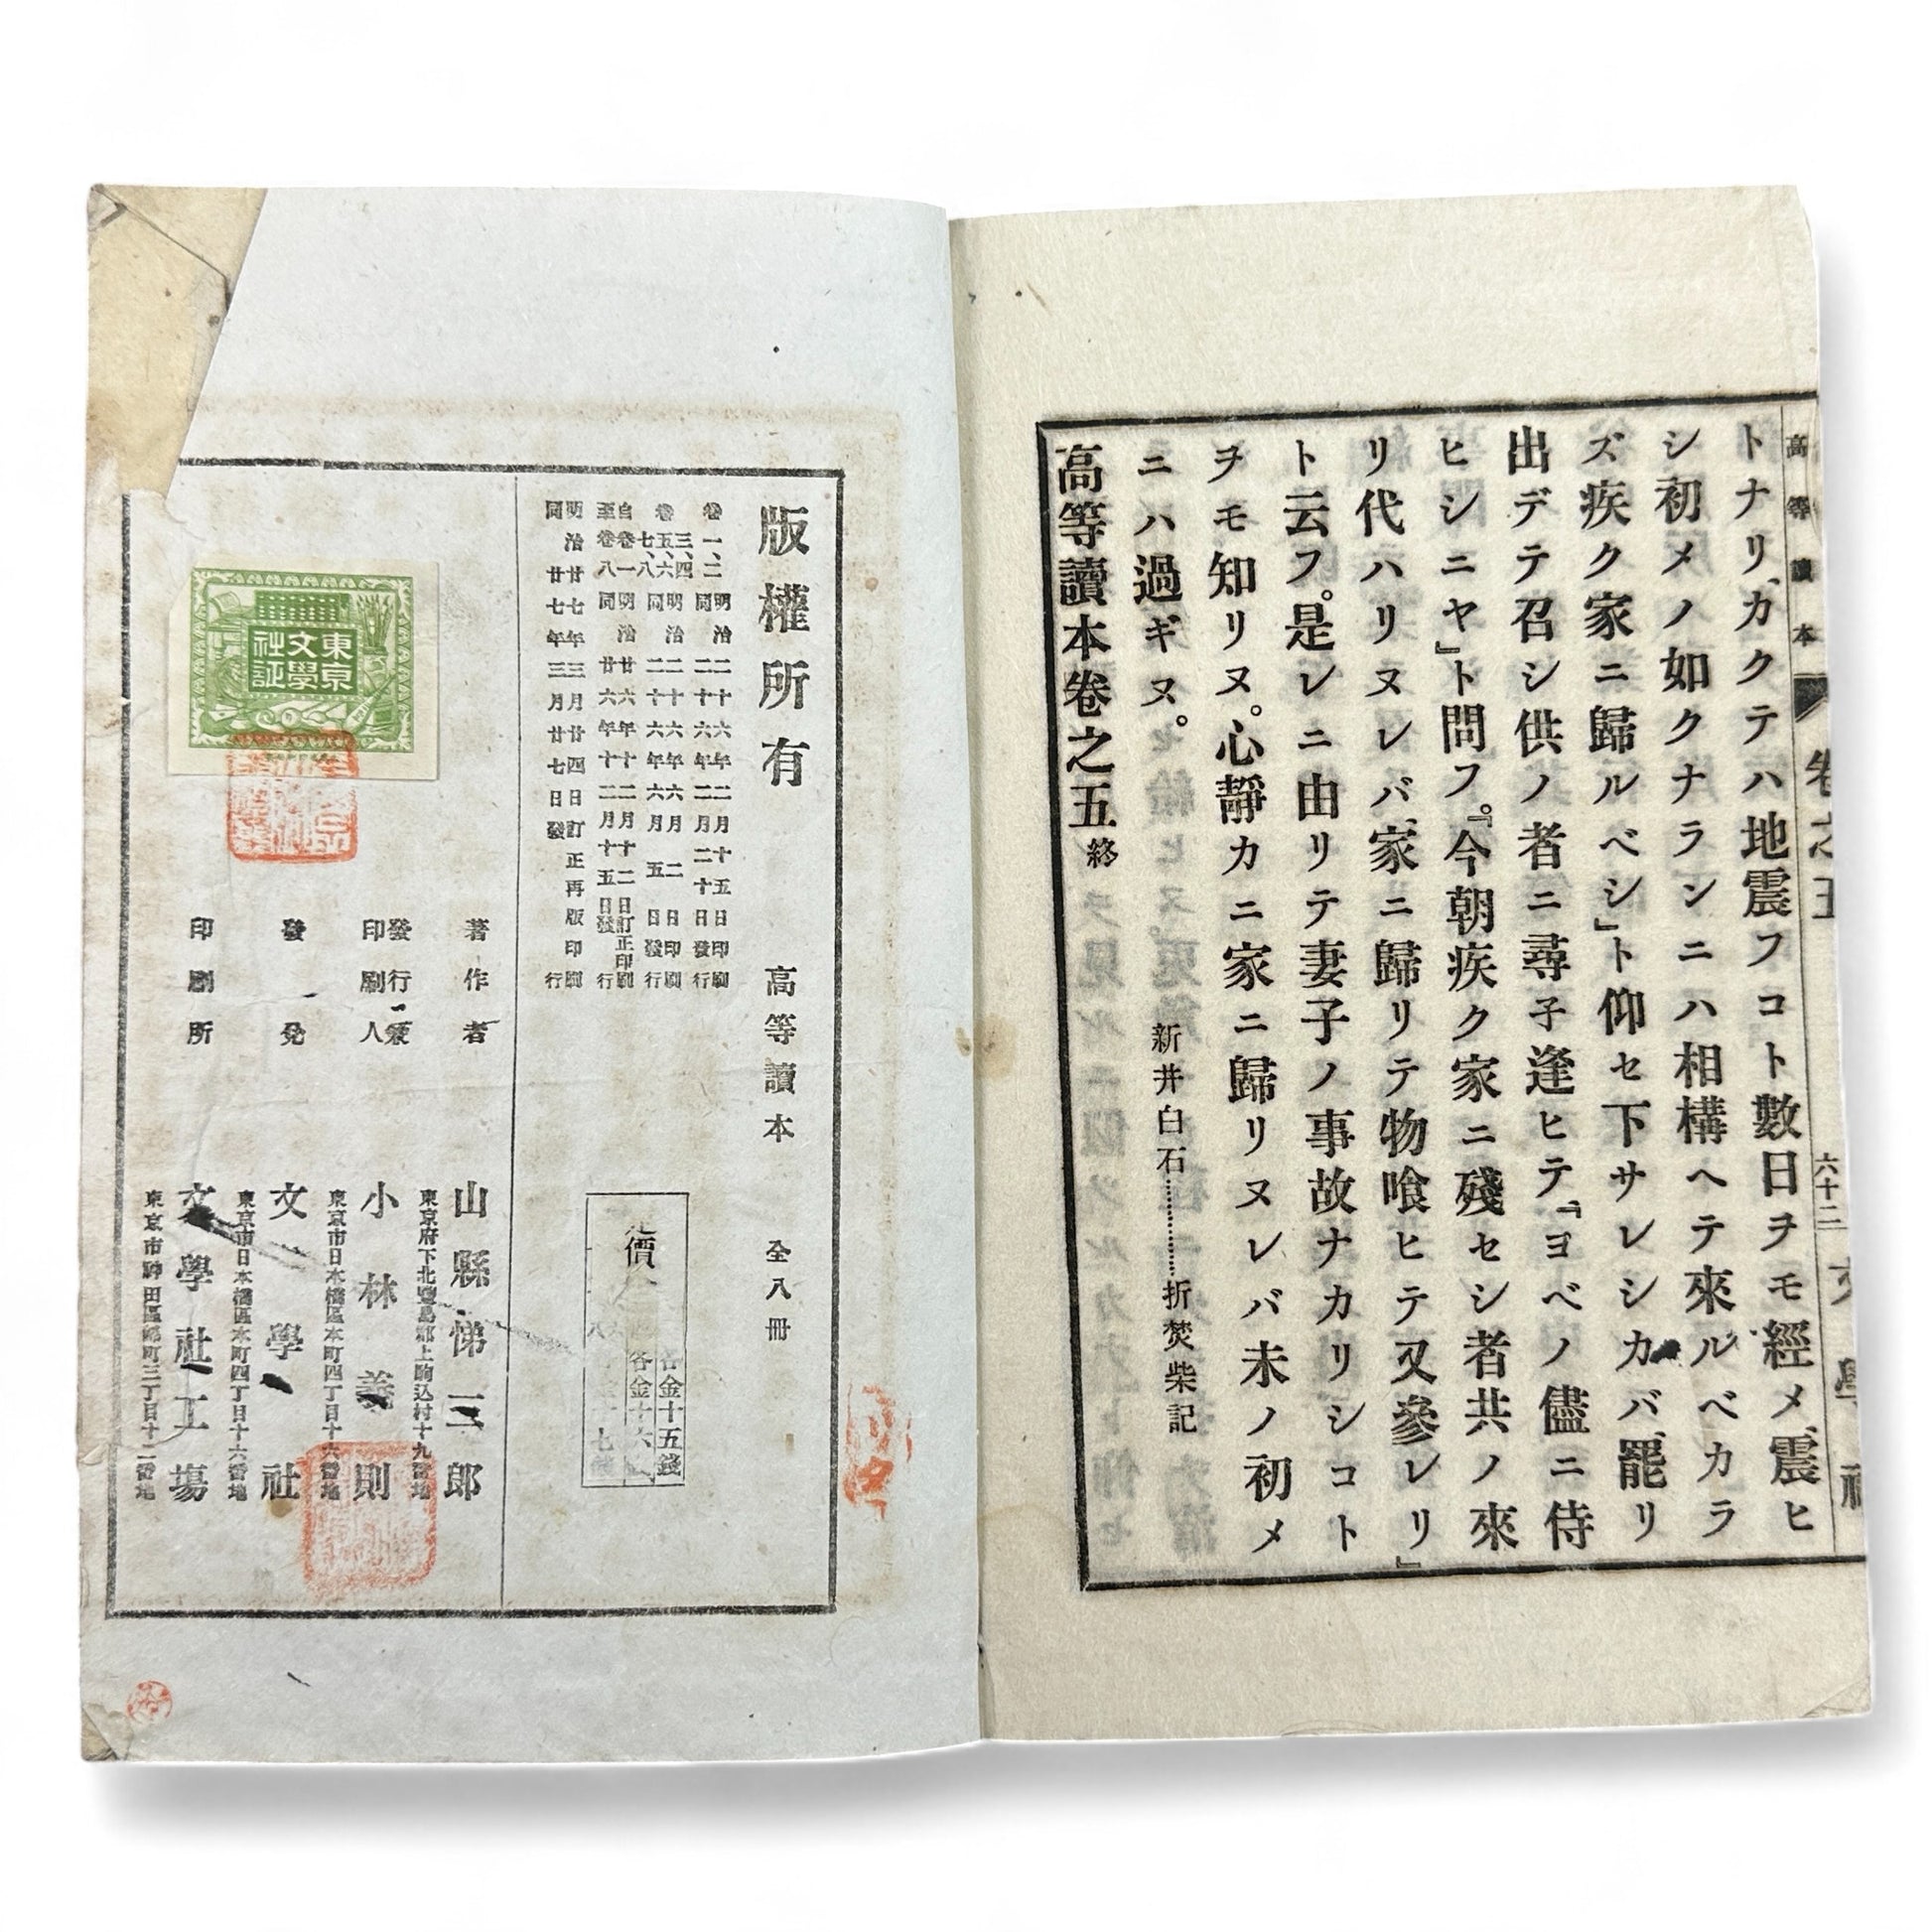 高等讀本
卷之五
六十二
文學社
トナリ、カクテハ地震フコト數日ヲモ經メ、震ヒ
シ初メノ如クナランニハ相構ヘテ來ルベカラ
ズ疾ク家ニ歸ルベシ」ト仰セ下サレシカバ、罷リ
出デテ召シ供ノ者ニ尋子逢ヒテ『ヨベノ儘ニ侍
ヒシニヤ』ト問フ。『今朝疾ク家ニ殘セシ者共ノ來
リ代ハリヌレバ、家ニ歸リテ物喰ヒテ又參レリ』
ト云フ。是レニ由リテ妻子ノ事故ナカリシコト
ヲモ知リヌ。心靜カニ家ニ歸リヌレバ未ノ初メ
ニハ過ギヌ。
新井白石…………折焚柴記
高等讀本卷之五終
版權所有
高等讀本
全八冊
卷一、二 明治二十六年二月十五日印刷
三、四 同二十六年二月二十日發行
卷五、六 明治二十六年六月二日印刷
七、八 同二十六年六月五日發行
自卷一 明治廿六年十二月十二日訂正印刷
至卷八 同廿六年十二月十五日發行
明治廿七年三月廿四日訂正再版印刷
同廿七年三月廿七日發行
價
各金十五錢
各金十六
著作者
山縣悌三郎
東京府下北豐島郡上駒込村十九番地
發行兼
印刷人
小林義則
東京市日本橋區本町四丁目十六番地
發兌
文學社
東京市日本橋區本町四丁目十六番地
印刷所
文學社工場
東京市神田區町三丁目十二番地
東京
文學
社証